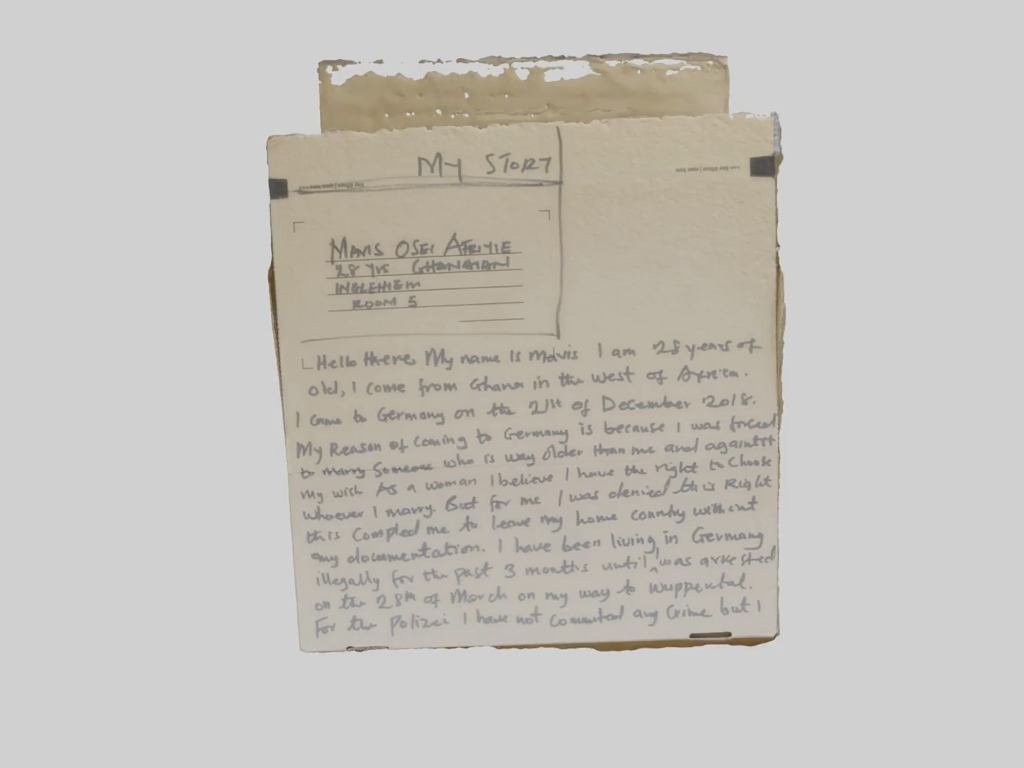 MY STORY
MAVIS OSEI AFRIYIE
28 YRS GHANAIAN
INGLEHIEM
ROOM 5
Hello there, My name is Mavis I am 28 years of
old, I come from Ghana in the west of Africa.
I came to Germany on the 21st of December 2018.
My Reason of Coming to Germany is because I was forced
to marry Someone who is way older than me and against
my wish As a woman I believe I have the right to Choose
whoever I marry. But for me I was denied this Right
this Compled me to leave my home country without
any documentation. I have been living in Germany
illegally for the past 3 months until I was arrested
on the 28th of March on my way to Wuppertal.
For the Polizei I have not commited any Crime but I